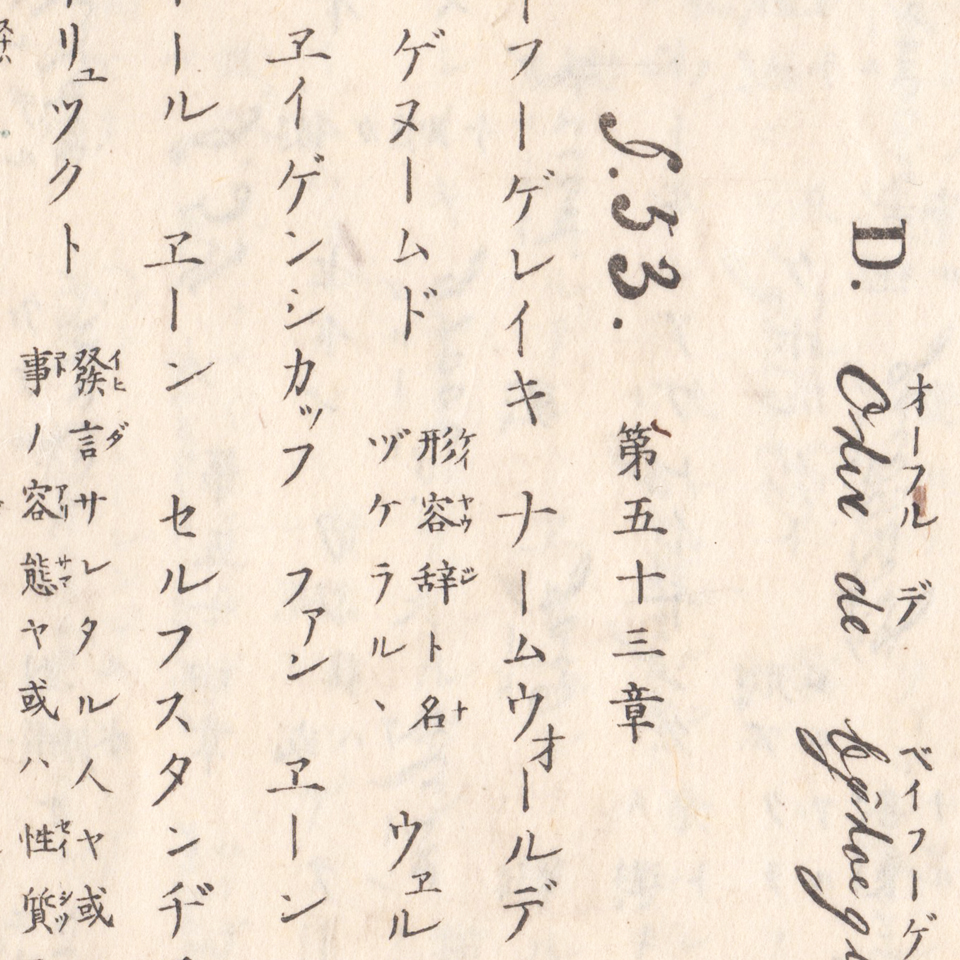 オーフル デ ベイフーゲ
D. Over de bijvoeg
§. 53. 第五十三章
フーゲレイキ ナームウォールデ
ゲヌームド 形容辞ト名ヅケラル、 ウェル
ヱイゲンシカップ ファン ヱーン
ール ヱーン セルフスタンヂ
リュツクト 發言サレタル人ヤ或事ノ容態ヤ或ハ性質